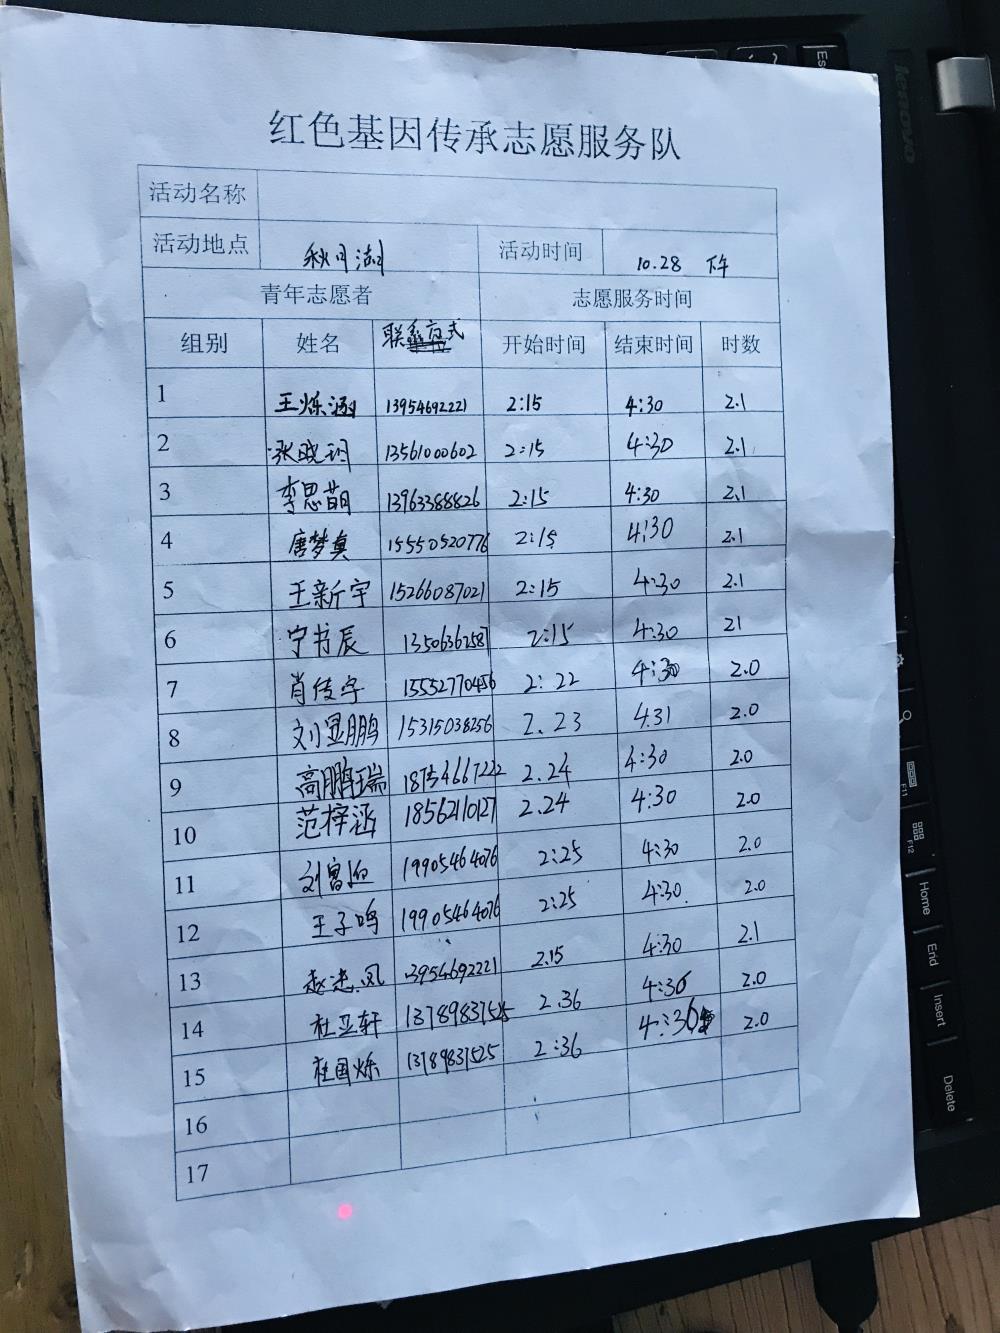 红色基因传承志愿服务队
活动名称
活动地点 秋月湖 活动时间 10.28 下午
青年志愿者 志愿服务时间
组别 姓名 联系方式 开始时间 结束时间 时数
1 王烁涵 13954692221 2:15 4:30 2.1
2 张晓玥 13561000602 2:15 4:30 2.1
3 李思萌 13963388826 2:15 4:30 2.1
4 唐梦真 15550520776 2:15 4:30 2.1
5 王新宇 15266087021 2:15 4:30 2.1
6 宁书辰 1350636258 2:15 4:30 21
7 肖传宇 15552770456 2:22 4:30 2.0
8 刘显鹏 15315038256 2.23 4.31 2.0
9 高鹏瑞 18754667222 2.24 4:30 2.0
10 范梓涵 18562110127 2.24 4:30 2.0
11 刘富 19905464076 2:25 4:30 2.0
12 王子鸣 19905464076 2:25 4:30 2.0
13 赵 凤 3954692221 2.15 4:30 2.1
14 杜亚轩 13789837525 2.36 4:36 2.0
15 杜国烁 13789837525 2:36 4:36 2.0
16
17
lenovo
Esc
F11
F12
Home
End
Insert
Delete